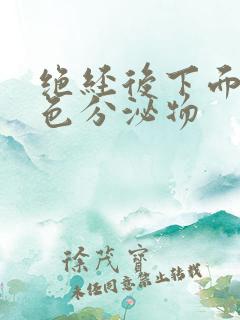 絕経後下面
色分泌物
徐茂寶
未经同意禁止转载